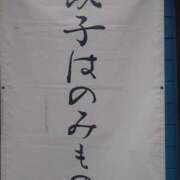 餃子はのみもの